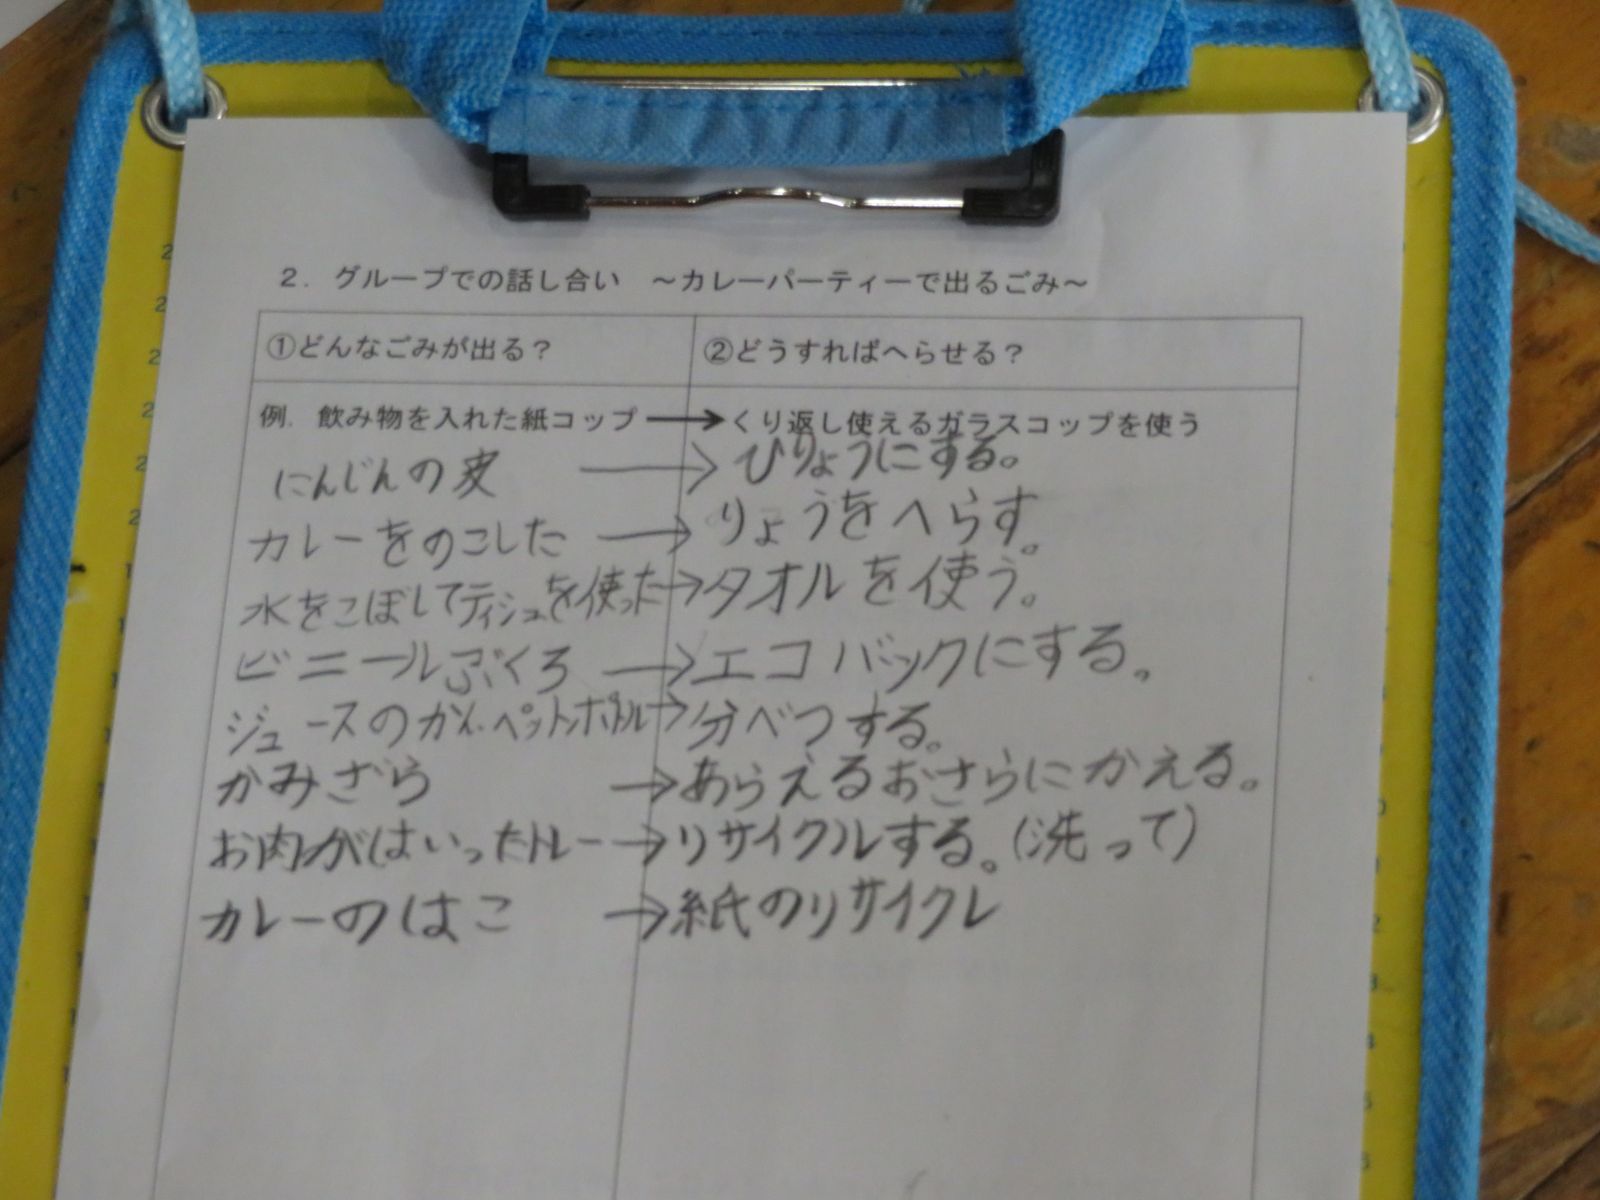 2. グループでの話し合い ~カレーパーティーで出るごみ~
①どんなごみが出る? ②どうすればへらせる?
例. 飲み物を入れた紙コップ → くり返し使えるガラスコップを使う
にんじんの皮 → ひりょうにする。
カレーをのこした → りょうをへらす。
水をこぼしてティシュを使った → タオルを使う。
ビニールぶくろ → エコバックにする。
ジュースのかん・ペットボトル → 分べつする。
かみざら → あらえるおさらにかえる。
お肉がはいったトレー → リサイクルする。(洗って)
カレーのはこ → 紙のリサイクレ